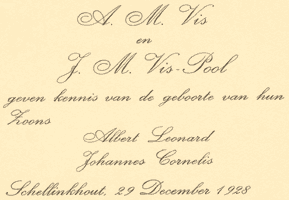 A. M. Vis
en
J. M. Vis-Pool
geven kennis van de geboorte van hun
Zoons
Albert Leonard
Johannes Cornelis
Schellinkhout, 29 December 1928